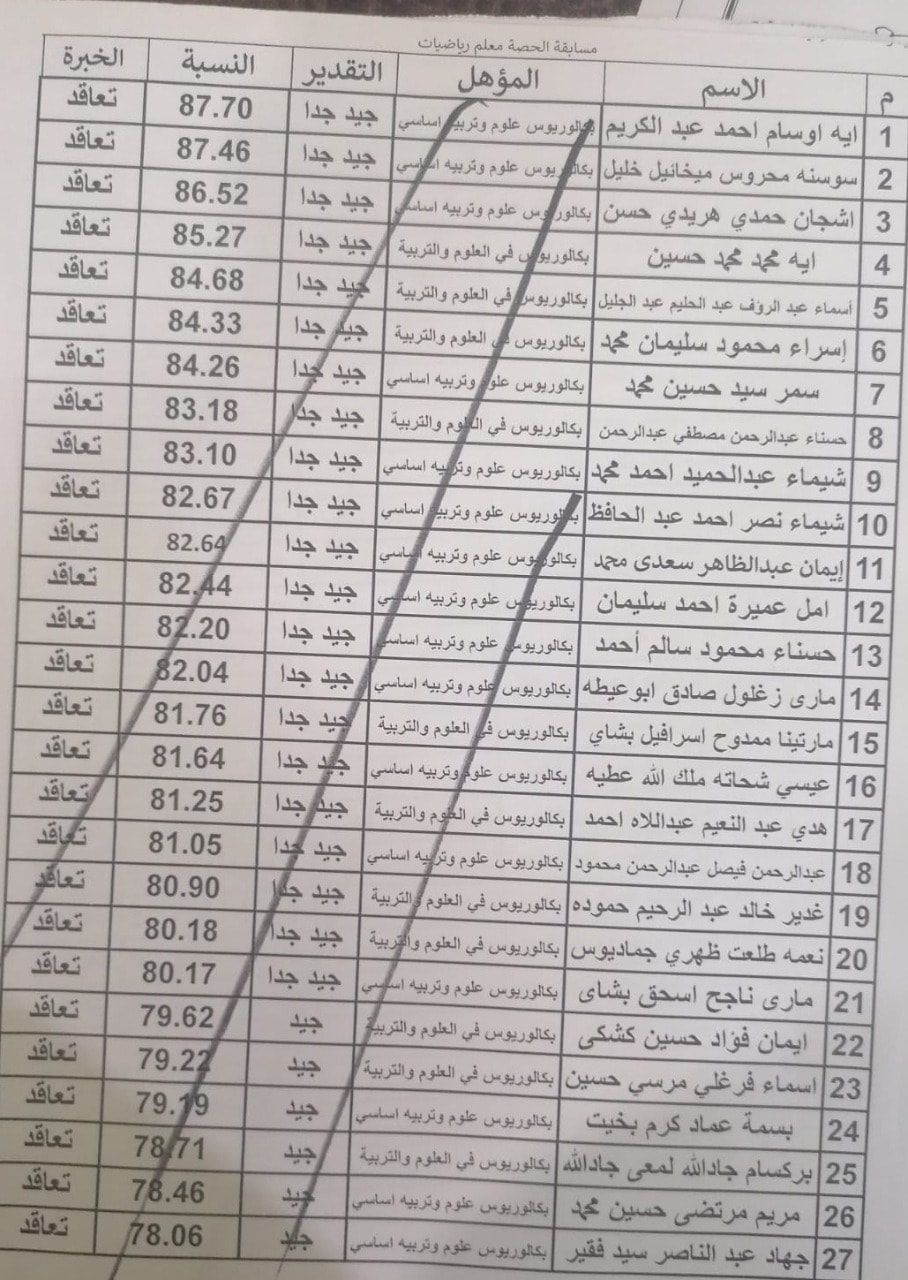 مسابقة الحصة معلم رياضيات
م الاسم المؤهل التقدير النسبة الخبرة
1 ايه اوسام احمد عبد الكريم بكالوريوس علوم وتربيه اساسي جيد جدا 87.70 تعاقد
2 سوسنه محروس ميخائيل خليل بكالوريوس علوم وتربيه اساسي جيد جدا 87.46 تعاقد
3 اشجان حمدي هريدي حسن بكالوريوس علوم وتربيه اساسي جيد جدا 86.52 تعاقد
4 ايه محمد محمد حسين بكالوريوس في العلوم والتربية جيد جدا 85.27 تعاقد
5 أسماء عبد الرؤف عبد الحليم عبد الجليل بكالوريوس في العلوم والتربية جيد جدا 84.68 تعاقد
6 إسراء محمود سليمان محمد بكالوريوس في العلوم والتربية جيد جدا 84.33 تعاقد
7 سمر سيد حسين محمد بكالوريوس علوم وتربيه اساسي جيد جدا 84.26 تعاقد
8 حسناء عبدالرحمن مصطفي عبدالرحمن بكالوريوس في العلوم والتربية جيد جدا 83.18 تعاقد
9 شيماء عبدالحميد احمد محمد بكالوريوس علوم وتربيه اساسي جيد جدا 83.10 تعاقد
10 شيماء نصر احمد عبد الحافظ بكالوريوس علوم وتربيه اساسي جيد جدا 82.67 تعاقد
11 إيمان عبدالظاهر سعدى محمد بكالوريوس علوم وتربيه اساسي جيد جدا 82.64 تعاقد
12 امل عميرة احمد سليمان بكالوريوس علوم وتربيه اساسي جيد جدا 82.44 تعاقد
13 حسناء محمود سالم أحمد بكالوريوس علوم وتربيه اساسي جيد جدا 82.20 تعاقد
14 مارى زغلول صادق ابوعيطه بكالوريوس علوم وتربيه اساسي جيد جدا 82.04 تعاقد
15 مارتينا ممدوح اسرافيل بشاي بكالوريوس في العلوم والتربية جيد جدا 81.76 تعاقد
16 عيسي شحاته ملك الله عطيه بكالوريوس علوم وتربيه اساسي جيد جدا 81.64 تعاقد
17 هدي عبد النعيم عبداللاه احمد بكالوريوس في العلوم والتربية جيد جدا 81.25 تعاقد
18 عبدالرحمن فيصل عبدالرحمن محمود بكالوريوس علوم وتربيه اساسي جيد جدا 81.05 تعاقد
19 غدير خالد عبد الرحيم حموده بكالوريوس في العلوم والتربية جيد جدا 80.90 تعاقد
20 نعمه طلعت ظهري جماديوس بكالوريوس في العلوم والتربية جيد جدا 80.18 تعاقد
21 مارى ناجح اسحق بشاى بكالوريوس علوم وتربيه اساسي جيد جدا 80.17 تعاقد
22 ايمان فؤاد حسين كشكى بكالوريوس في العلوم والتربية جيد 79.62 تعاقد
23 اسماء فرغلي مرسي حسين بكالوريوس في العلوم والتربية جيد 79.22 تعاقد
24 بسمة عماد كرم بخيت بكالوريوس علوم وتربيه اساسي جيد 79.19 تعاقد
25 بركسام جادالله لمعى جادالله بكالوريوس في العلوم والتربية جيد 78.71 تعاقد
26 مريم مرتضى حسين محمد بكالوريوس علوم وتربيه اساسي جيد 78.46 تعاقد
27 جهاد عبد الناصر سيد فقير بكالوريوس علوم وتربيه اساسي جيد 78.06 تعاقد